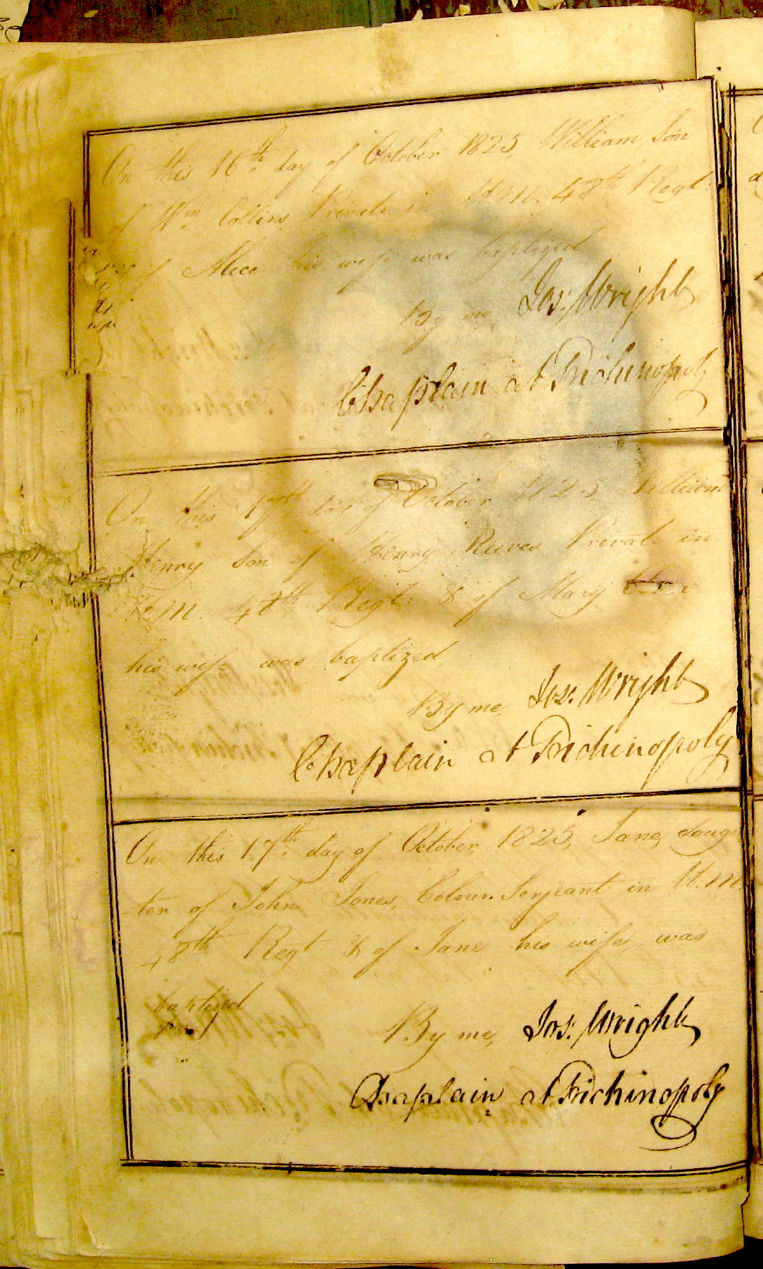 On this 16th day of October 1825 William, Son
of Wm. Collins Private in H.M. 48th Regt
& of Alice his wife was baptized
By me, Jos: Wright
Chaplain at Trichinopoly
On this 17th day of October 1825 William
Henry son of Henry Reeves Privat in
H.M. 48th Regt. & of Mary
his wife was baptized
By me, Jos: Wright
Chaplain at Trichinopoly
On this 17th day of October, 1825, Jane, daug
ter of John Jones, Colour Serjeant in H.M.
48th Regt & of Jane his wife, was
baptized
By me, Jos: Wright
Chaplain at Trichinopoly